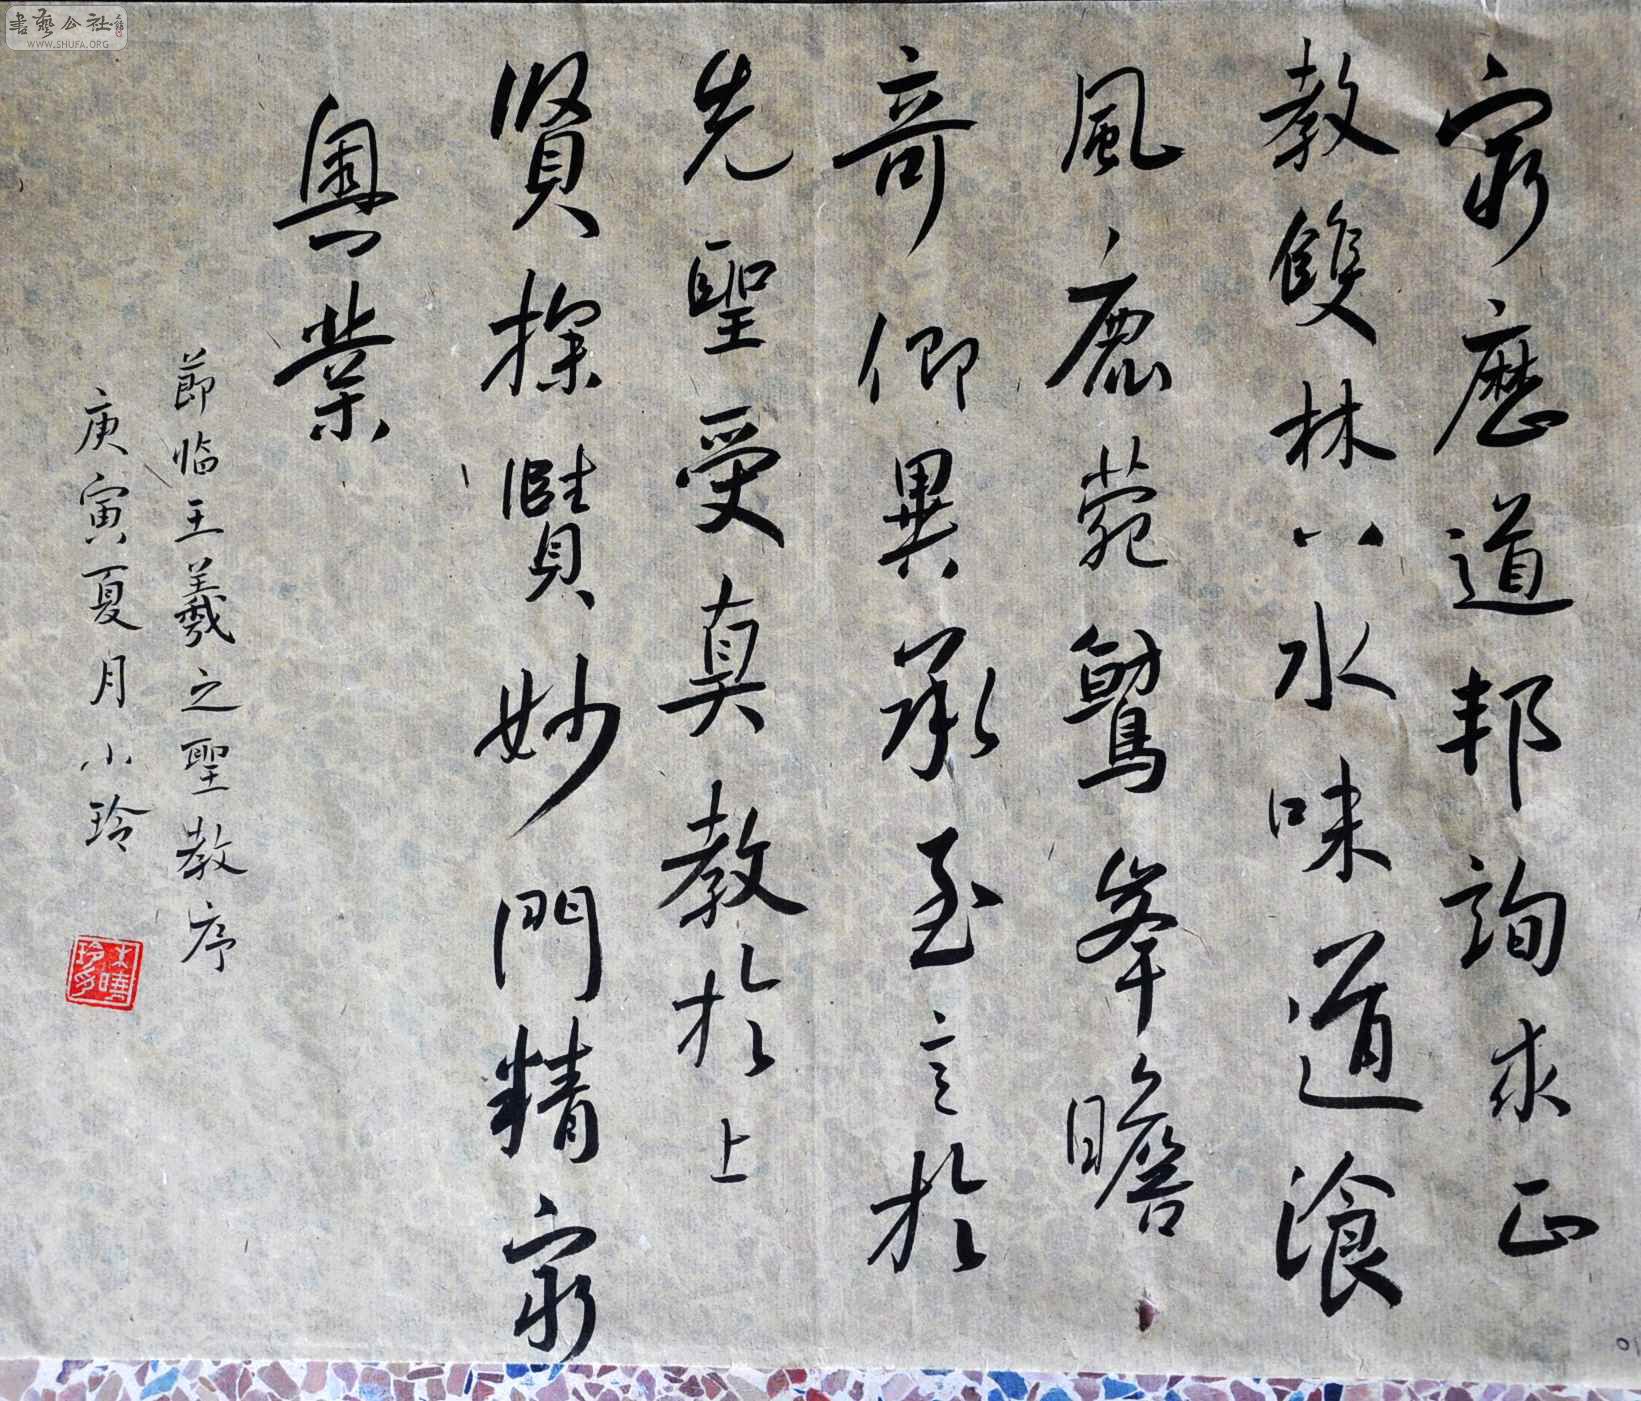 窮歷道邦詢求正
教雙林八水味道飡
風鹿菀鷲峯瞻
奇仰異承至言於
先聖受真教於上
賢探賾妙門精窮
奧業
節临王羲之聖教序
庚寅夏月小玲
書藝公社
WWW.SHUFA.ORG